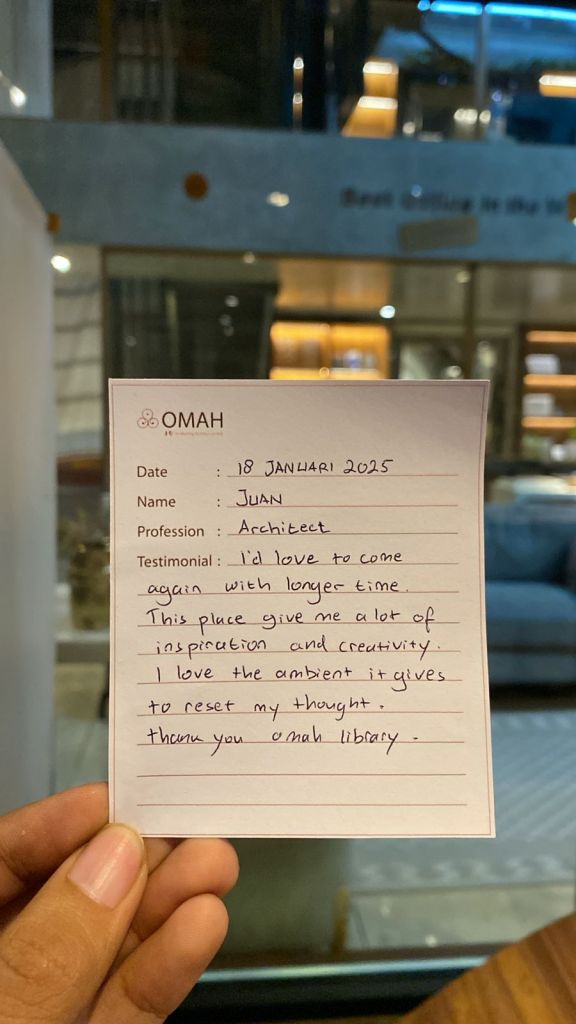 Best Office in the
OMAH
Date : 18 JANUARI 2025
Name : JUAN
Profession : Architect
Testimonial : I'd love to come
again with longer time.
This place give me a lot of
inspiration and creativity.
I love the ambient it gives
to reset my thought.
thank you omah library.